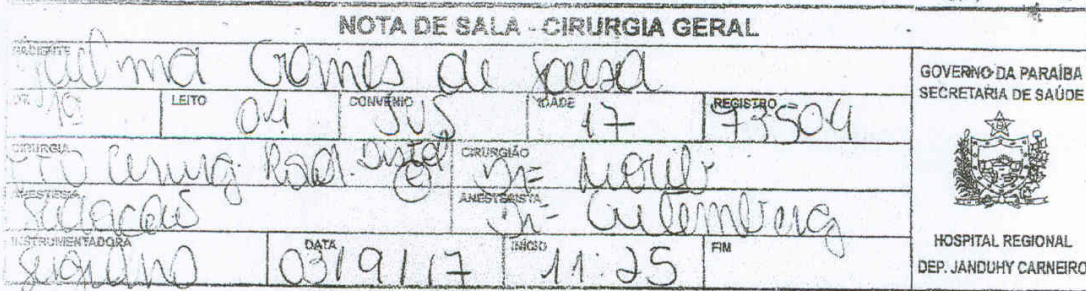 NOTA DE SALA - CIRURGIA GERAL
PACIENTE
Gomes de Sousa
LEITO 04 CONVÊNIO SUS IDADE 17 REGISTRO 73504
CIRURGIA
TTO Cirurg. Rad. Distal CIRURGIÃO Dr=
ANESTESIA Sedação ANESTESISTA Dr= Gutemberg
INSTRUMENTADORA DATA 03/9/17 INÍCIO 11:25 FIM
GOVERNO DA PARAÍBA
SECRETARIA DE SAÚDE
HOSPITAL REGIONAL
DEP. JANDUHY CARNEIRO